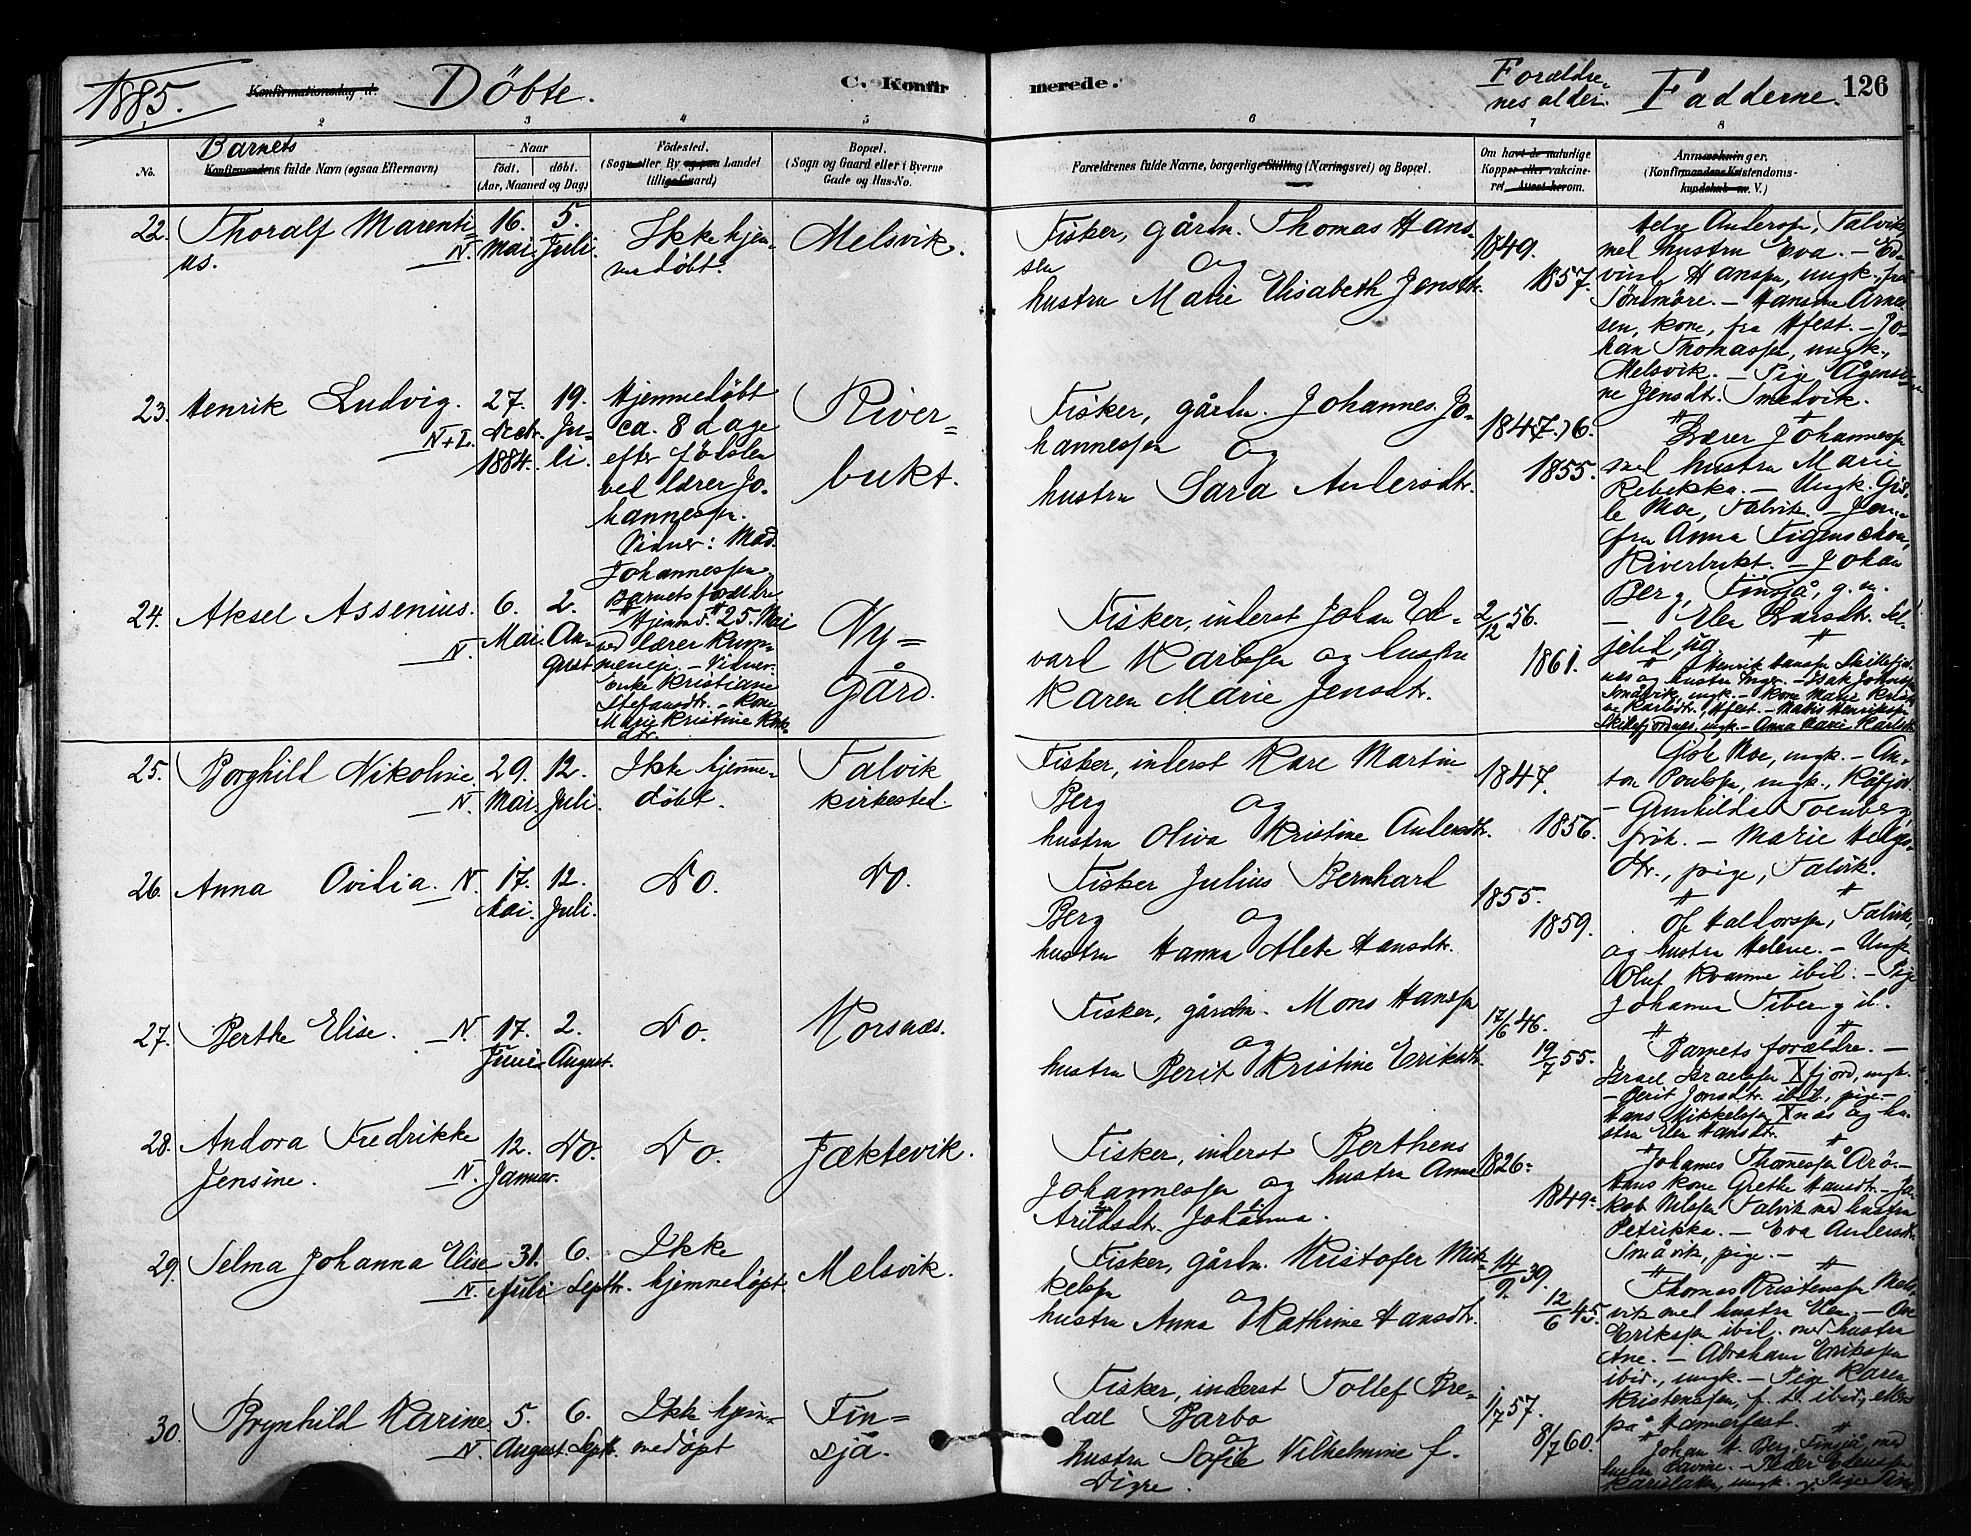 1885.
Konfirmationsdag d.
Döbte.
C. Konfirmerede.
Forældrenes alder.
Fadderne.
126
2 3 4 5 6 7 8
No.
Barnets
Konfirmandens fulde Navn (ogsaa Efternavn)
Naar
født. døbt.
(Aar, Maaned og Dag)
Fødested.
(Sogn eller By og paa Landet
tillige Gaard)
Bopæl.
(Sogn og Gaard eller i Byerne
Gade og Hus-No.
Forældrenes fulde Navne, borgerlige Stilling (Næringsvei) og Bopæl.
Om havt de naturlige
Kopper eller vakcineret,
Anmærkninger.
(Konfirmandens Kristendomskundskab
m. V.)
22. Thoralf Marentius.
N.
16. Mai.
5. Juli.
Ikke hjemmedöbt.
Melsvik.
Fisker, gårdm. Thomas Hanssen
og
hustru Marie Elisabeth Jensdtr.
1849.
1857.
Anderssen, Talvik,
med hustru Eva. – Edvind
Hanssen, ungk., fra
Söndmöre. – Hansine Arnesen,
kone, fra Hfest. – Johan
Thomassen, ungk.,
Melsvik. – Pige
Jensdtr. Smelvik.
23. Henrik Ludvig.
N+L.
27. Decbr. 1884.
19. Juli.
Hjemmedöbt
ca. 8 dage
efter födslen
ved lærer Johannessen.
Vidner: Mad.
Johannessen.
Barnets forældre
Riverbukt.
Fisker, gårdm. Johannes Johannessen
og
hustru Sara Andersdtr.
1847.
1855.
Lærer Johannessen
med hustru Marie
Rebekka. – Ungk. Gisle
Moe, Talvik. – Jomfru
Anna Figenschou,
Riverbukt. – Johan
Berg, Finsjå, g. m.
– Elen Larsdtr.
24. Aksel Assenius.
N.
6. Mai.
2. August.
Hjemmd. 25. Mai
ved lærer
Vidner:
Enke Kristiane
Stefansdtr. – Kone
Marie Kristine
Nygård.
Fisker, inderst Johan Edvard
Karlssen og hustru
Karen Marie Jensdtr.
2/12 56.
1861.
Henrik Hanssen
og hustru Inger. – Isak Johnsen
Småvik, ungk. – Kone Marie
Karlsdtr., Hfest. – Mathis Henrikssen
ungk. – Anna Marie Karlsdtr.
25. Borghild Nikoline
N.
29. Mai.
12. Juli.
Ikke hjemmedöbt.
Talvik
kirkested.
Fisker, inderst Kare Martin
Berg og
hustru Oliva Kristine Andersdtr.
1847.
1856.
Gisle Moe, ungk. – Anton
Poulssen, ungk., Kåfjord
– Gunhilda
frök. – Marie Helgesdtr.,
pige, Talvik.
26. Anna Ovidia. N.
17. Mai.
12. Juli.
Do.
Do.
Fisker Julius Bernhard
Berg og
hustru Hanna Alete Hansdtr.
1855.
1859.
Ole Halvorssen, Talvik,
og hustru Helene. – Ungk.
Oluf Kvamme ibid. – Pige
Johanna Fiberg id.
27. Berthe Elise. N.
17. Juni
2. August.
Do.
Korsnæs.
Fisker, gårdm. Mons Hanssen
og
hustru Berit Kristine Eriksdtr.
17/6 46.
19/7 55.
Barnets forældre. –
Israel Israelssen Xfjord, ungk.
– Berit Jonsdtr. ibid., pige –
Hans Mikkelssen Xnæs og hustru
Elen Hansdtr.
28. Andora Fredrikke
Jensine. N.
12. Januar.
Do.
Do.
Jæktevik.
Fisker, inderst Berthens
Johannessen og hustru Anne
Arildsdtr. Johanna.
1826.
1849.
Johannes Thomessen Årö. –
Hans kone Grethe Hansdtr. – Jakob
Nilssen Talvik med hustru
Petrikka. – Eva Andersdtr.
Småvik, pige. –
29. Selma Johanna Elise
N.
31. Juli
6. Septbr.
Ikke
hjemmedöpt.
Melsvik.
Fisker, gårdm. Kristofer Mikkelssen
og
hustru Anna Kathrine Hansdtr.
14/9 39.
12/6 45.
Thomas Kristenssen Melsvik
med hustru Elen. –
Erikssen ibid. med hustru
Ane. – Abraham Erikssen
ibid., ungk. – Pige Karen
Kristenssen, f. d. ibid.,
på Hamerfest.
30. Brynhild Karine
N.
5. August.
6. Septb.
Ikke hjemmedöpt
Finsjå.
Fisker, inderst Tollef Bredal
Barbo
og
hustru Sofie Vilhelmine f.
Digre.
1/7 57.
8/7 60.
Johan H. Berg, Finsjå, med
hustru
ungk.